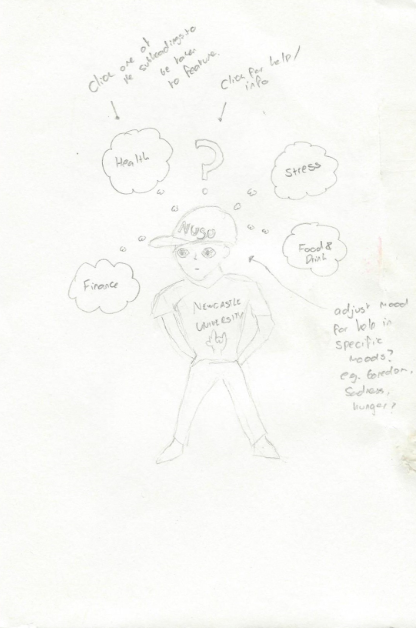 Click one of
the subheadings to
be taken
to feature
Click for help/
info
Health
?
Stress
NUSU
Food &
Drink
Finance
NEWCASTLE
UNIVERSITY
adjust mood
for help in
specific
moods?
e.g. Boredom,
Sadness,
hunger?